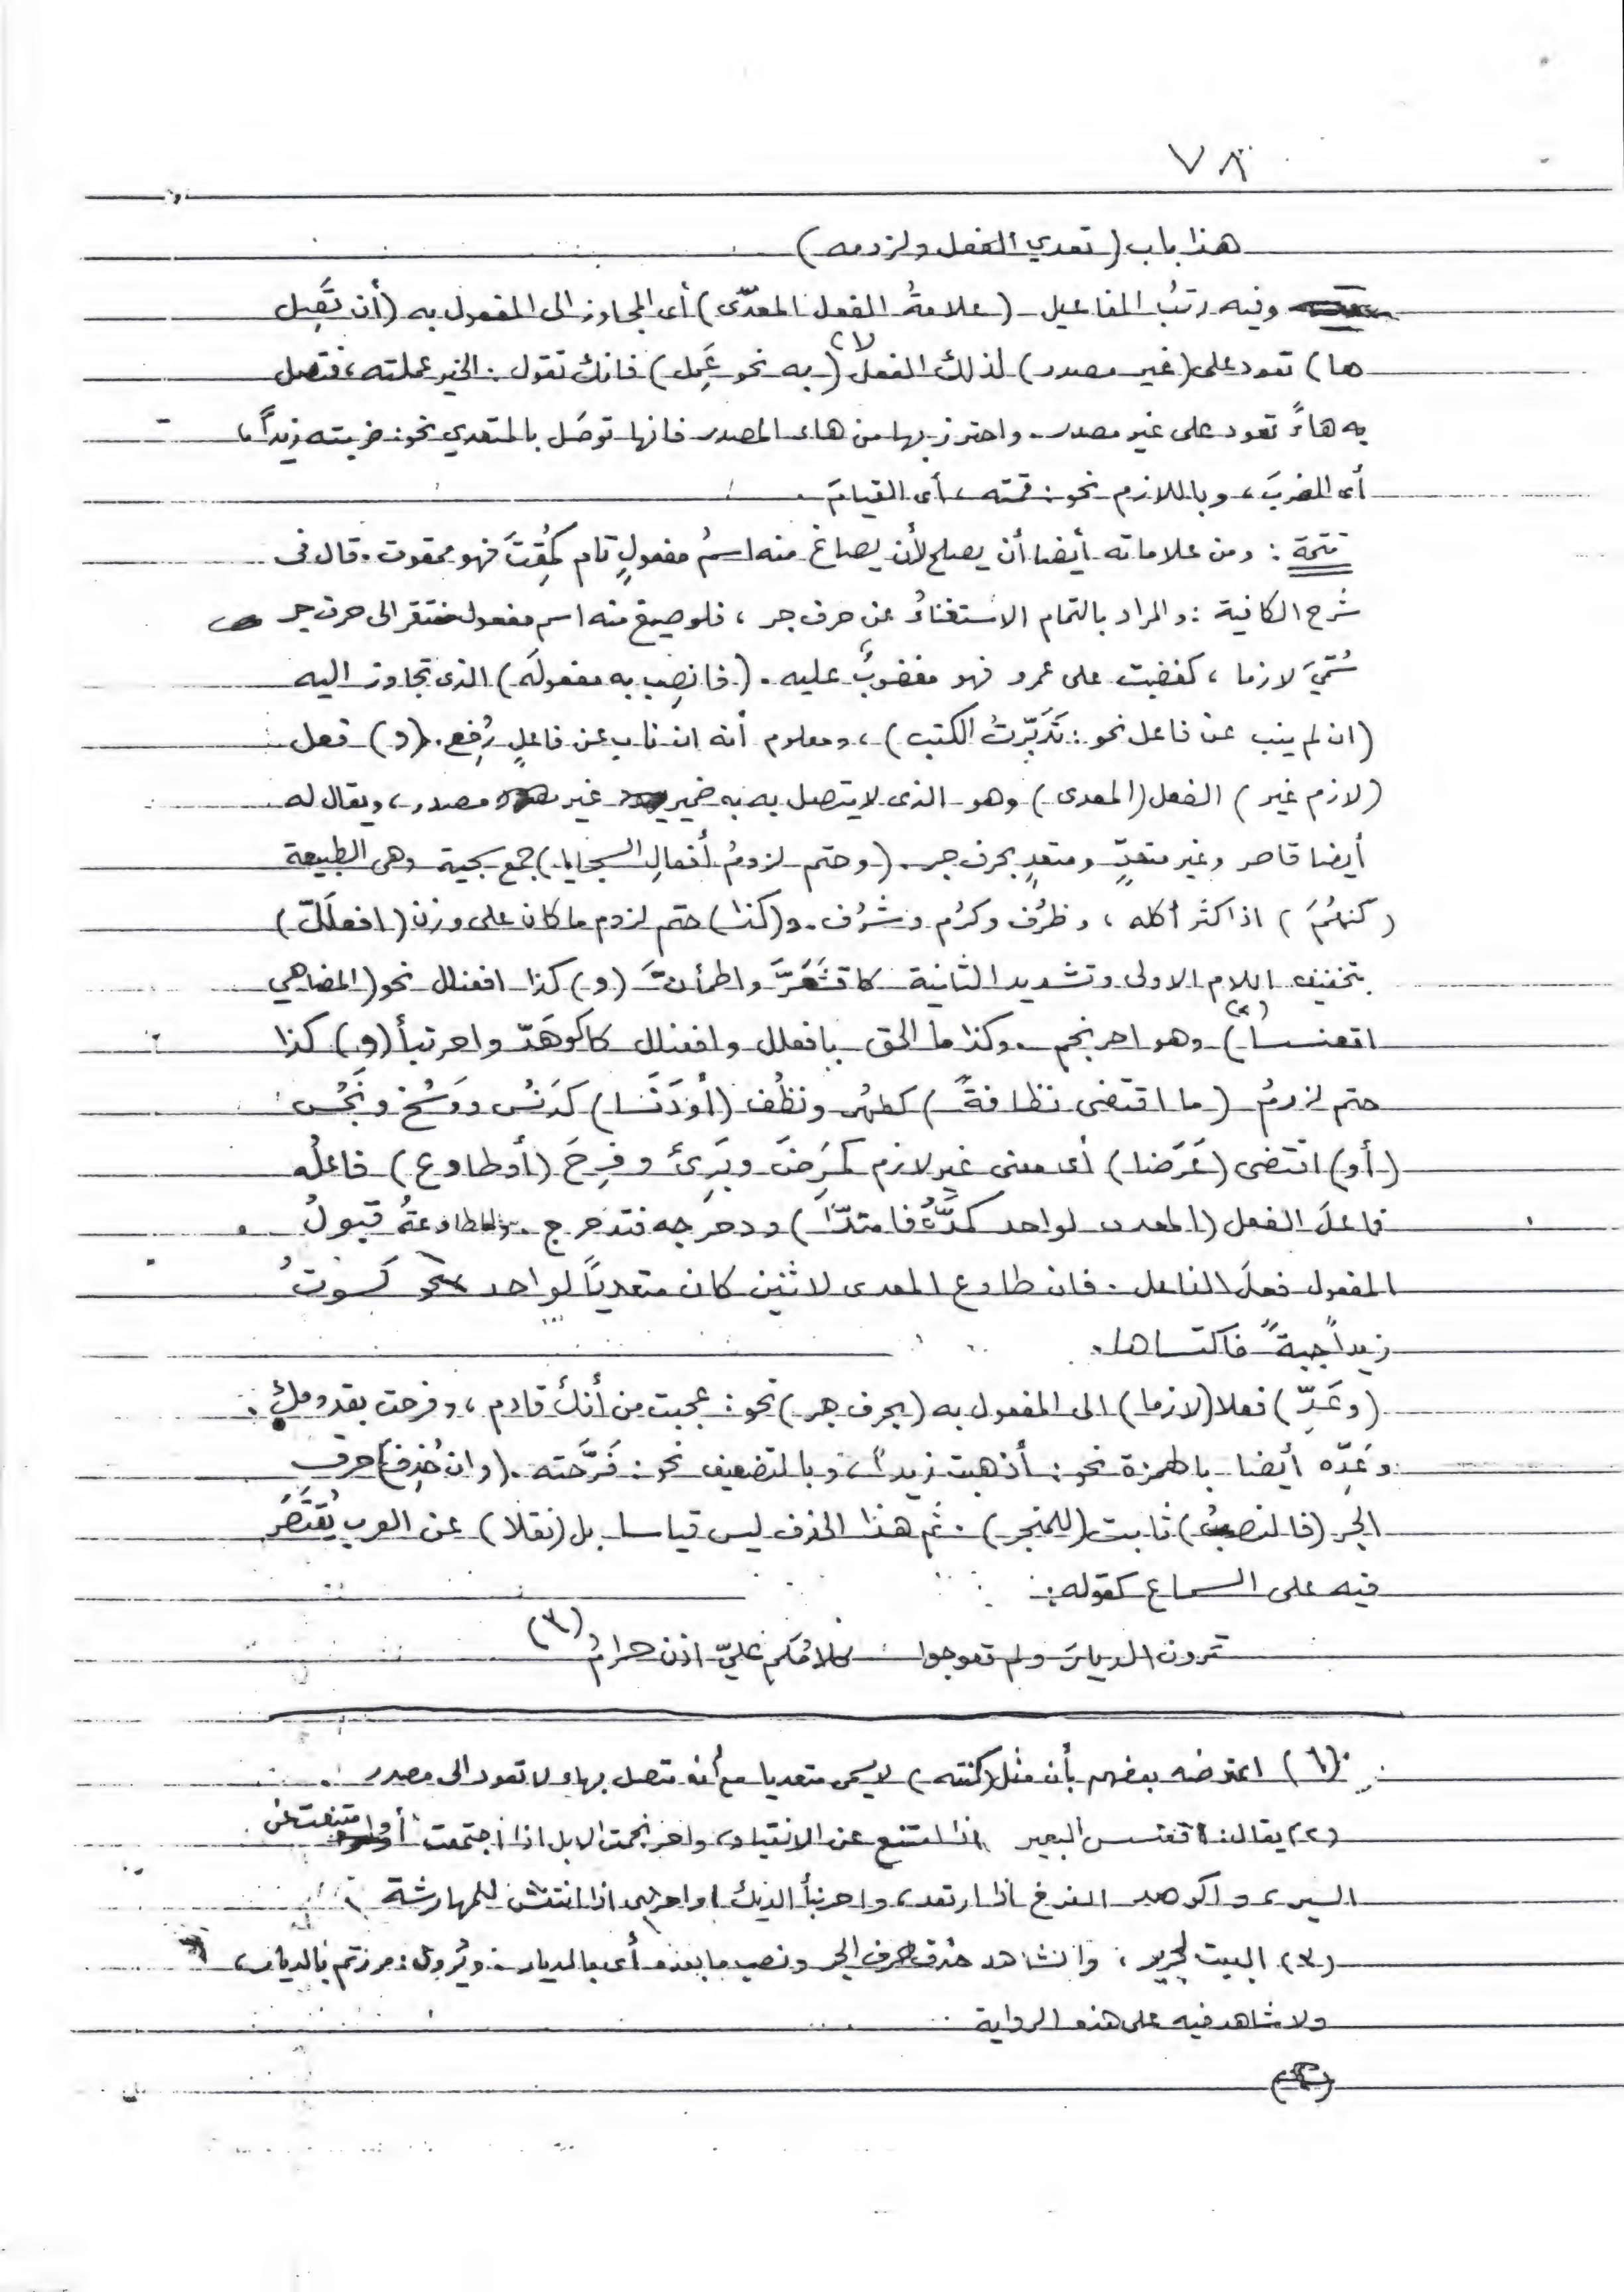 ٧٨
هذا باب (تعدي الفعل ولزومه)
وفيه رتبُ المفاعيل (علامةُ الفعل المعدّى) أى المجاوز الى المفعول به (أن تَصِل
ها) تعود على (غير مصدر) لذلك الفعل (١) (به نحو عَمِل) فانك تقول: الخير عملته، فتصل
به هاءً تعود على غير مصدر. واحترز بها من هاء المصدر فانها توصَل بالمتعدي نحو: ضربته زيداً،
أى الضربَ، وباللازم نحو: قمته، أى القيامَ.
تتمة: ومن علاماته أيضا أن يصلح لأن يصاغ منه اسمُ مفعولٍ تام كمُقِتَ فهو ممقوت. قال فى
شرح الكافية: والمراد بالتمام الاستغناءُ عن حرف جر، فلو صيغ منه اسم مفعول مفتقر الى حرف جر
سُمّيَ لازما، كغضبت على عمرو فهو مغضوبٌ عليه. (فانصِب به مفعولَه) الذى تجاوز اليه
(ان لم ينب عن فاعل نحو: تَدَبَّرتُ الكتب)، ومعلوم أنه ان ناب عن فاعلٍ رُفِع. (و) فعل
(لازم غير) الفعل (المعدى) وهو الذى لا يتصل به به ضمير غير مصدر، ويقال له
أيضا قاصر وغير متعدٍّ ومتعدٍ بحرف جر. (وحتم لزومُ أفعالِ السجايا) جمع سجية وهى الطبيعة
(كنهُمَ) اذا كثر أكله، وظرُف وكرُم وشرُف. و(كذا) حتم لزوم ما كان على وزن (افعلَلّ)
بتخفيف اللام الاولى وتشديد الثانية كاقشَعَرَّ واطمأنَّ (و) كذا افعنلل نحو (المضاهي
اقعنسسا) (٢) وهو احرنجم. وكذا ما الحق بافعلل وافعنلل كاكوَهَدّ واحرنبأ (و) كذا
حتم لزومُ (ما اقتضى نظافةً) كطهُر ونظُف (أو دَنَسا) كدَنُس ووَسُخ ونَجُس
(أو) اقتضى (عَرَضا) أى معنى غير لازم كمَرِضَ وبَرِئَ وفَرِحَ (أو طاوع) فاعلُه
فاعلَ الفعل (المعدى لواحد كمدَّهُ فامتدّا) ودحرجه فتدحرج. والمطاوعةُ قبولُ
المفعول فعلَ الفاعل. فان طاوع المعدى لاثنين كان متعدياً لواحد نحو كسوتُ
زيداً جبةً فاكتساها.
(وعَدِّ) فعلا (لازما) الى المفعول به (بحرف جر) نحو: عجبت من أنك قادم، وفرحت بقدومك.
وعَدِّه أيضا بالهمزة نحو: أذهبت زيداً، وبالتضعيف نحو: فَرَّحته. (وان حُذِف) حرف
الجر (فالنصبُ) ثابت (للمنجر). ثم هذا الحذف ليس قياسا بل (نقلا) عن العرب يُقتَصَر
فيه على السماع كقوله:
تمرون الديارَ ولم تعوجوا كلامُكم عليّ اذن حرامُ (٣)
(١) اعترضه بعضهم بأن مثل (كنته) لا يسمى متعديا مع أنه متصل بهاء لا تعود الى مصدر.
(٢) يقال: اقعنسس البعير اذا امتنع عن الانقياد، واحرنجمت الابل اذا اجتمعت أو امتنعت عن
السير، واكوهد الفرخ اذا ارتعد، واحرنبأ الديك واحرنبى اذا انتفش للمهارشة
(٣) البيت لجرير، والشاهد حذف حرف الجر ونصب ما بعده أى بالديار. ويُروى: مررتم بالديار،
ولا شاهد فيه على هذه الرواية